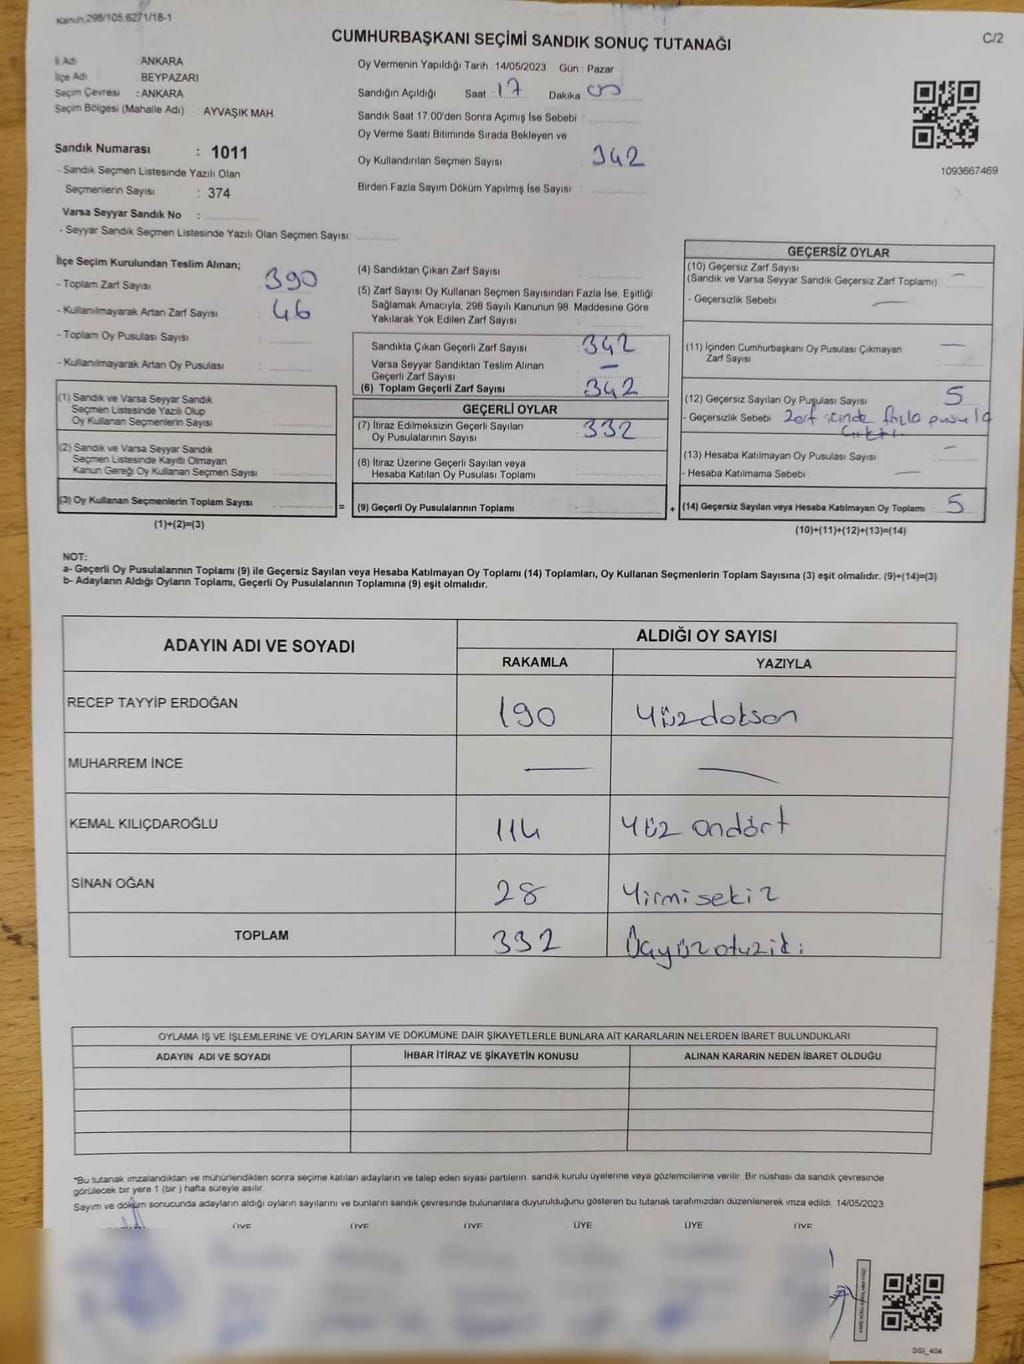 Kanun 298/105,6271/18-1
CUMHURBAŞKANI SEÇİMİ SANDIK SONUÇ TUTANAĞI
C/2
İl Adı ANKARA
İlçe Adı BEYPAZARI
Seçim Çevresi : ANKARA
Seçim Bölgesi (Mahalle Adı) : AYVAŞIK MAH
Sandık Numarası : 1011
- Sandık Seçmen Listesinde Yazılı Olan
Seçmenlerin Sayısı : 374
Varsa Seyyar Sandık No :
- Seyyar Sandık Seçmen Listesinde Yazılı Olan Seçmen Sayısı:
Oy Vermenin Yapıldığı Tarih : 14/05/2023 Gün : Pazar
Sandığın Açıldığı Saat : 17 Dakika 00
Sandık Saat 17:00'den Sonra Açımış İse Sebebi :
Oy Verme Saati Bitiminde Sırada Bekleyen ve
Oy Kullandırılan Seçmen Sayısı : 342
Birden Fazla Sayım Döküm Yapılmış İse Sayısı :
1093667469
İlçe Seçim Kurulundan Teslim Alınan;
- Toplam Zarf Sayısı : 390
- Kullanılmayarak Artan Zarf Sayısı : 46
- Toplam Oy Pusulası Sayısı :
- Kullanılmayarak Artan Oy Pusulası :
(1) Sandık ve Varsa Seyyar Sandık
Seçmen Listesinde Yazılı Olup
Oy Kullanan Seçmenlerin Sayısı :
(2) Sandık ve Varsa Seyyar Sandık
Seçmen Listesinde Kayıtlı Olmayan
Kanun Gereği Oy Kullanan Seçmen Sayısı :
(3) Oy Kullanan Seçmenlerin Toplam Sayısı :
(1)+(2)=(3)
=
(4) Sandıktan Çıkan Zarf Sayısı :
(5) Zarf Sayısı Oy Kullanan Seçmen Sayısından Fazla İse, Eşitliği
Sağlamak Amacıyla, 298 Sayılı Kanunun 98. Maddesine Göre
Yakılarak Yok Edilen Zarf Sayısı :
Sandıkta Çıkan Geçerli Zarf Sayısı : 342
Varsa Seyyar Sandıktan Teslim Alınan
Geçerli Zarf Sayısı : —
(6) Toplam Geçerli Zarf Sayısı : 342
GEÇERLİ OYLAR
(7) İtiraz Edilmeksizin Geçerli Sayılan
Oy Pusulalarının Sayısı : 332
(8) İtiraz Üzerine Geçerli Sayılan veya
Hesaba Katılan Oy Pusulası Toplamı :
(9) Geçerli Oy Pusulalarının Toplamı :
+
GEÇERSİZ OYLAR
(10) Geçersiz Zarf Sayısı
(Sandık ve Varsa Seyyar Sandık Geçersiz Zarf Toplamı) : —
- Geçersizlik Sebebi : —
(11) İçinden Cumhurbaşkanı Oy Pusulası Çıkmayan
Zarf Sayısı : —
(12) Geçersiz Sayılan Oy Pusulası Sayısı : 5
- Geçersizlik Sebebi Zarf içinde fazla pusula
Çıktı.
(13) Hesaba Katılmayan Oy Pusulası Sayısı : —
- Hesaba Katılmama Sebebi : —
(14) Geçersiz Sayılan veya Hesaba Katılmayan Oy Toplamı : 5
(10)+(11)+(12)+(13)=(14)
NOT:
a- Geçerli Oy Pusulalarının Toplamı (9) ile Geçersiz Sayılan veya Hesaba Katılmayan Oy Toplamı (14) Toplamları, Oy Kullanan Seçmenlerin Toplam Sayısına (3) eşit olmalıdır. (9)+(14)=(3)
b- Adayların Aldığı Oyların Toplamı, Geçerli Oy Pusulalarının Toplamına (9) eşit olmalıdır.
ADAYIN ADI VE SOYADI ALDIĞI OY SAYISI
RAKAMLA YAZIYLA
RECEP TAYYİP ERDOĞAN 190 Yüzdokson
MUHARREM İNCE — —
KEMAL KILIÇDAROĞLU 114 Yüz ondört
SİNAN OĞAN 28 Yirmisekiz
TOPLAM 332 Üçyüzotuziki
OYLAMA İŞ VE İŞLEMLERİNE VE OYLARIN SAYIM VE DÖKÜMÜNE DAİR ŞİKAYETLERLE BUNLARA AİT KARARLARIN NELERDEN İBARET BULUNDUKLARI
ADAYIN ADI VE SOYADI İHBAR İTİRAZ VE ŞİKAYETİN KONUSU ALINAN KARARIN NEDEN İBARET OLDUĞU
*Bu tutanak imzalandıktan ve mühürlendikten sonra seçime katılan adayların ve talep eden siyasi partilerin sandık kurulu üyelerine veya gözlemcilerine verilir. Bir nüshası da sandık çevresinde
görülecek bir yere 1 (bir ) hafta süreyle asılır.
Sayım ve döküm sonucunda adayların aldığı oyların sayılarını ve bunların sandık çevresinde bulunanlara duyurulduğunu gösteren bu tutanak tarafımızdan düzenlenerek imza edildi. 14/05/2023
ÜYE ÜYE ÜYE ÜYE ÜYE ÜYE
SSI_404